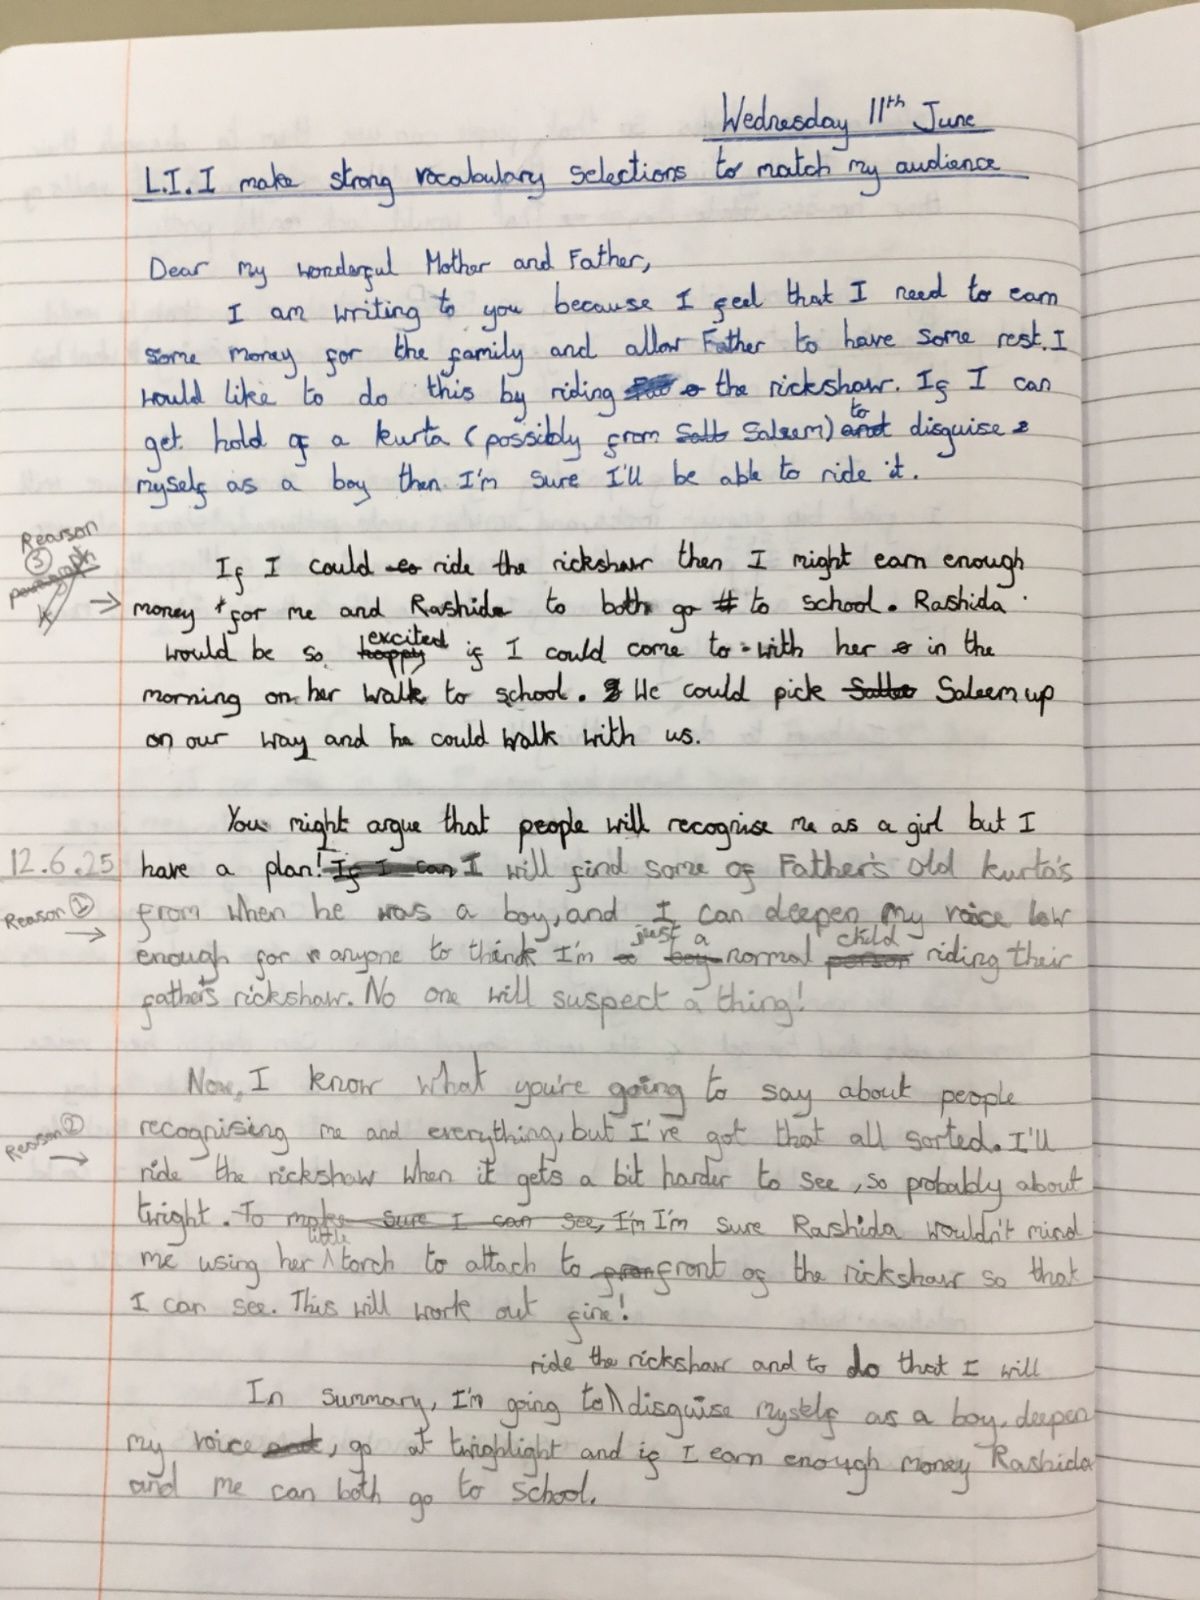 Wednesday 11th June
L.I. I make strong vocabulary selections to match my audience
Dear my wonderful Mother and Father,
I am writing to you because I feel that I need to earn
some money for the family and allow Father to have some rest. I
would like to do this by riding the rickshaw. If I can
get hold of a kurta (possibly from Saleem) to disguise
myself as a boy then I'm sure I'll be able to ride it.
Rearson
3
paragraph
If I could ride the rickshaw then I might earn enough
money for me and Rashida to both go to school. Rashida
would be so excited if I could come to with her in the
morning on her walk to school. We could pick Saleem up
on our way and he could walk with us.
You might argue that people will recognise me as a girl but I
12.6.25
have a plan! If I can I will find some of Father's old kurta's
Reason 1
from when he was a boy, and I can deepen my voice low
enough for anyone to think I'm just a normal child riding their
father's rickshaw. No one will suspect a thing!
Now, I know what you're going to say about people
Reason 2
recognising me and everything, but I've got that all sorted. I'll
ride the rickshaw when it gets a bit harder to see, so probably about
twright. To make sure I can see, I'm I'm sure Rashida wouldn't mind
me using her little torch to attach to front of the rickshaw so that
I can see. This will work out fine!
ride the rickshaw and to do that I will
In summary, I'm going to disguise myself as a boy, deepen
my voice, go at twighlight and if I earn enough money Rashida
and me can both go to school.